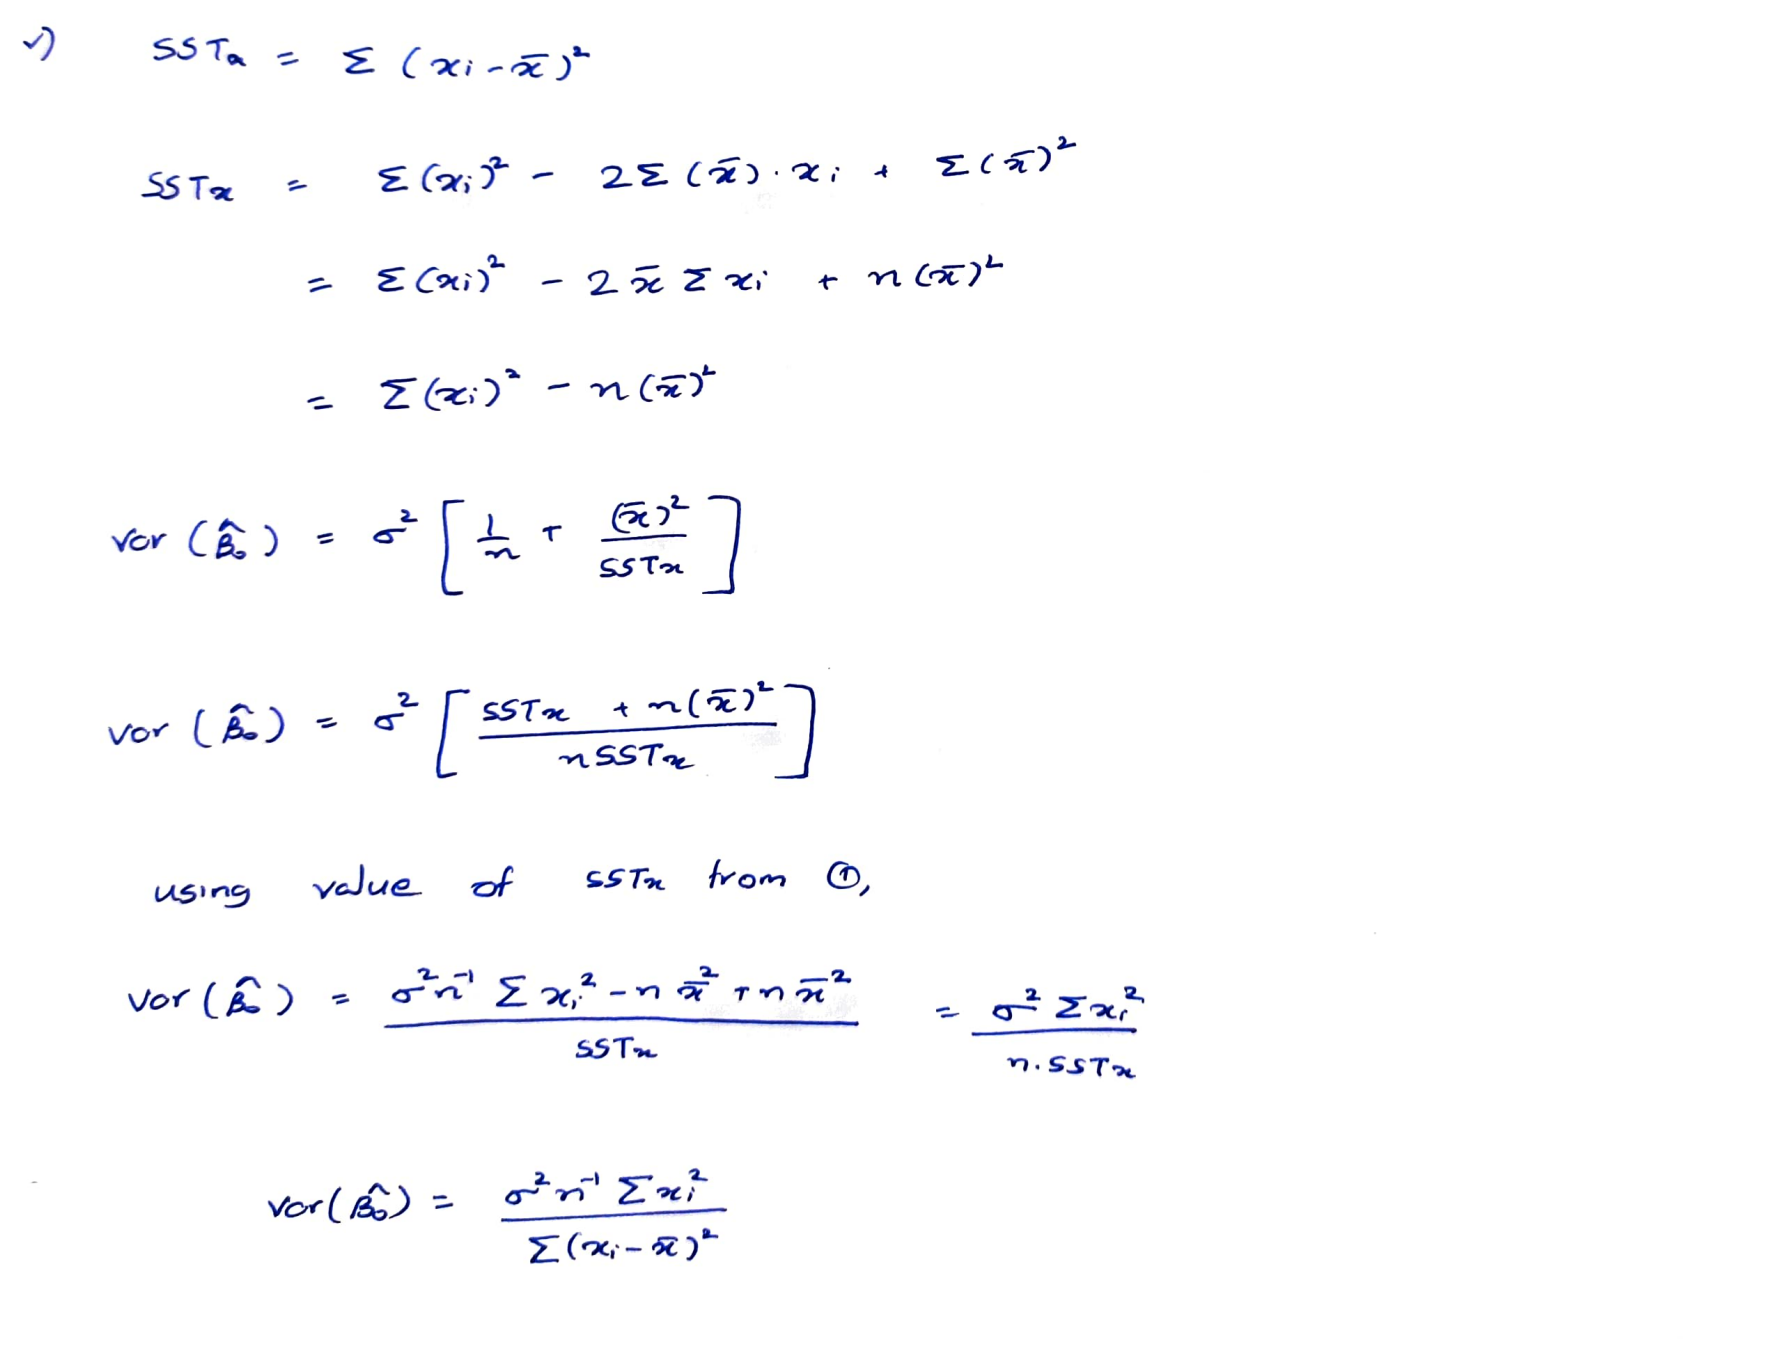 v) SSTx = Σ (xi - x̄)²
SSTx = Σ(xi)² - 2Σ (x̄) . xi + Σ(x̄)²
= Σ(xi)² - 2 x̄ Σ xi + n (x̄)²
= Σ(xi)² - n (x̄)²
var (β̂₀) = σ² [ 1/n + (x̄)²/SSTx ]
var (β̂₀) = σ² [ SSTx + n(x̄)² / nSSTx ]
using value of SSTx from ①,
var (β̂₀) = σ²n⁻¹ Σ xi² - n x̄² + n x̄² / SSTx = σ² Σxi² / n.SSTx
var(β̂₀) = σ²n⁻¹ Σxi² / Σ(xi - x̄)²